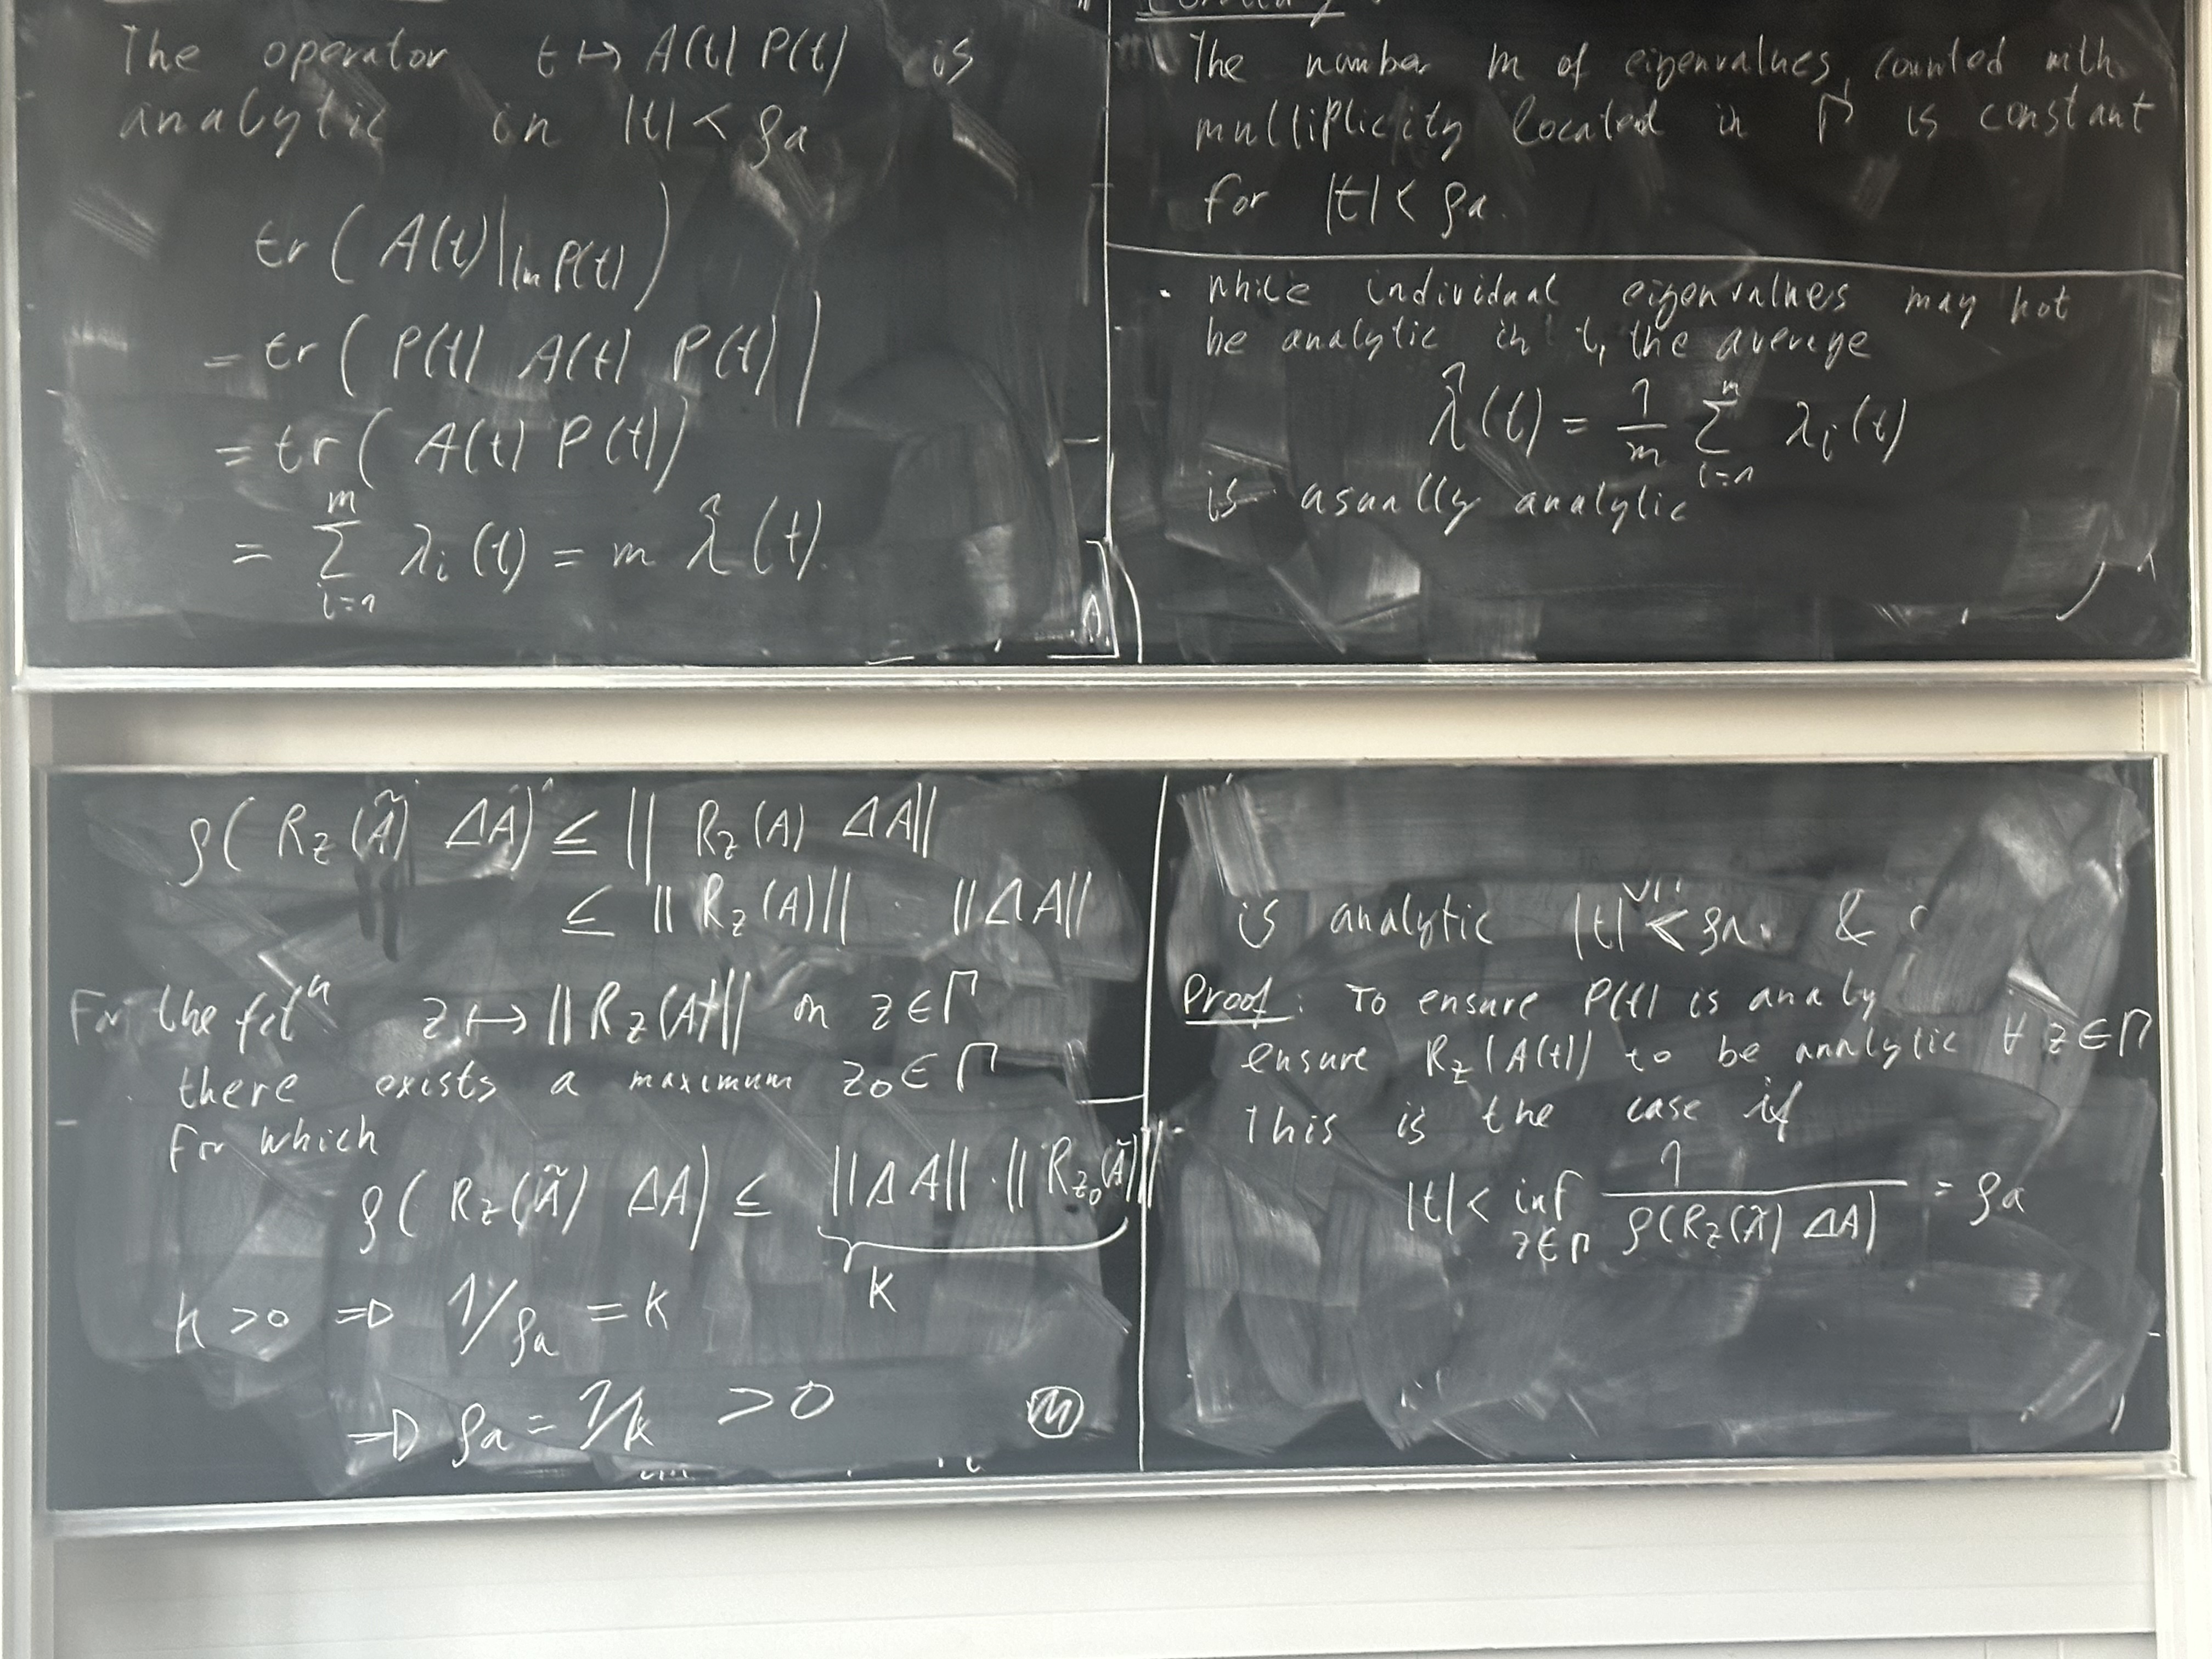 The operator t ↦ A(t) P(t) is
analytic in |t| < ρa
tr( A(t)|Im P(t) )
= tr( P(t) A(t) P(t) )
= tr( A(t) P(t) )
= Σ_{i=1}^{m} λi(t) = m λ̂(t).
The number m of eigenvalues, counted with
multiplicity located in Γ is constant
for |t| < ρa.
· While individual eigenvalues may not
be analytic in t, the average
λ̂(t) = 1/m Σ_{i=1}^{m} λi(t)
is usually analytic
ρ( Rz(Ã) ΔA) ≤ || Rz(A) ΔA||
≤ || Rz(A)|| · ||ΔA||
For the fctⁿ z ↦ || Rz(A)|| on z ∈ Γ
there exists a maximum z0 ∈ Γ
for which
ρ( Rz(Ã) ΔA) ≤ ||ΔA|| · || Rz0(Ã)||
K
K > 0 ⇒ 1/ρa = K
⇒ ρa = 1/k > 0
is analytic |t| < ρa. &
Proof: To ensure P(t) is analy
ensure Rz(A(t)) to be analytic ∀ z ∈ Γ
This is the case if
|t| < inf_{z∈Γ} 1/ρ(Rz(Ã) ΔA) = ρa